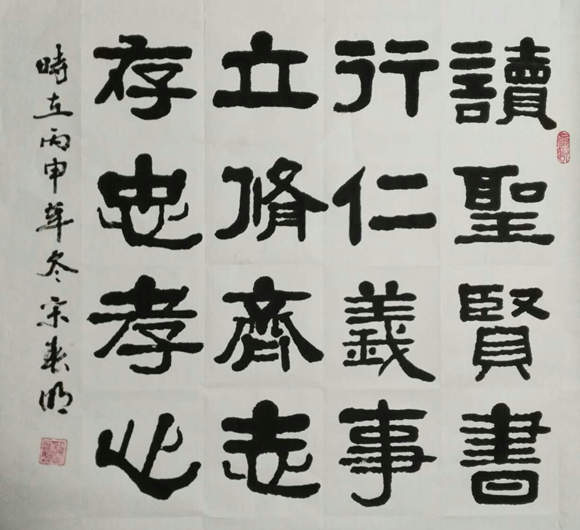 讀聖賢書
行仁義事
立脩齊志
存忠孝心
時在丙申年冬宗英明